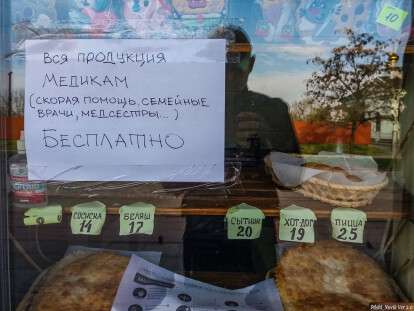 10
Вся продукция
Медикам
(скорая помощь, семейные
врачи, медсестры...)
Бесплатно
СОСИСКА
14
БЕЛЯШ
17
СЫТНИК
20
ХОТ-ДОГ
19
ПИЦЦА
25